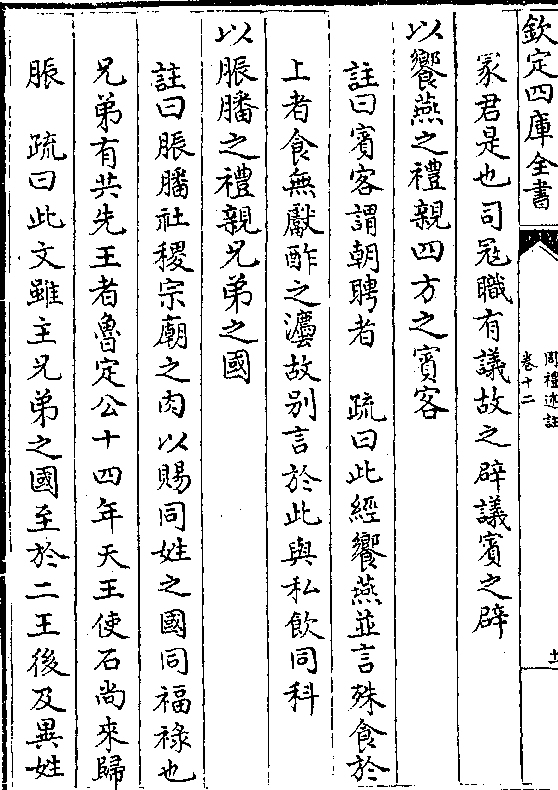 欽定四庫全書
周禮述註
卷十二
冢君是也司冦職有議故之辟議賓之辟
以饗燕之禮親四方之賓客
註曰賓客謂朝聘者 疏曰此經饗燕並言殊食於
上者食無獻酢之灋故别言於此與私飲同科
以脤膰之禮親兄弟之國
註曰脤膰社稷宗廟之肉以賜同姓之國同福祿也
兄弟有共先王者魯定公十四年天王使石尚來歸
脤 疏曰此文雖主兄弟之國至於二王後及異姓